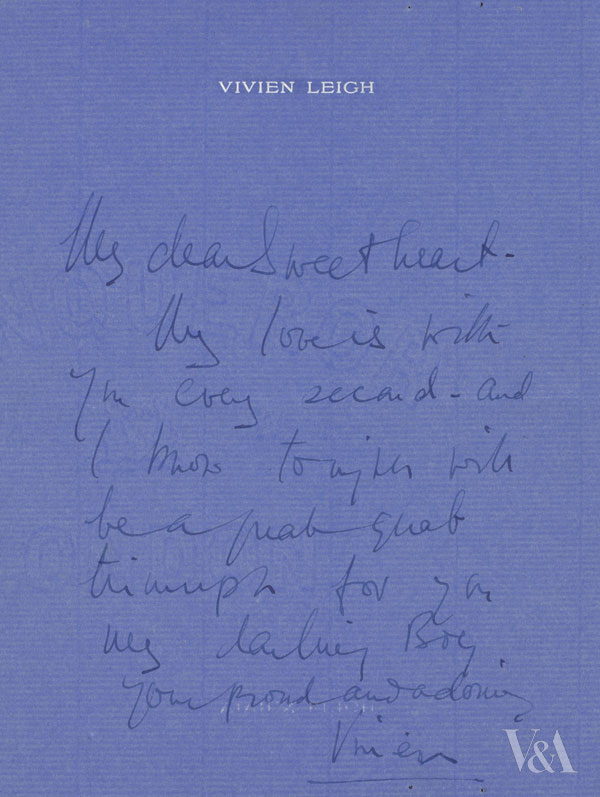 VIVIEN LEIGH
My dear Sweetheart -
My love is with
you every second - and
I know tonight will
be a great great
triumph for you
my darling Boy
Your proud and adoring
Vivien
V&A